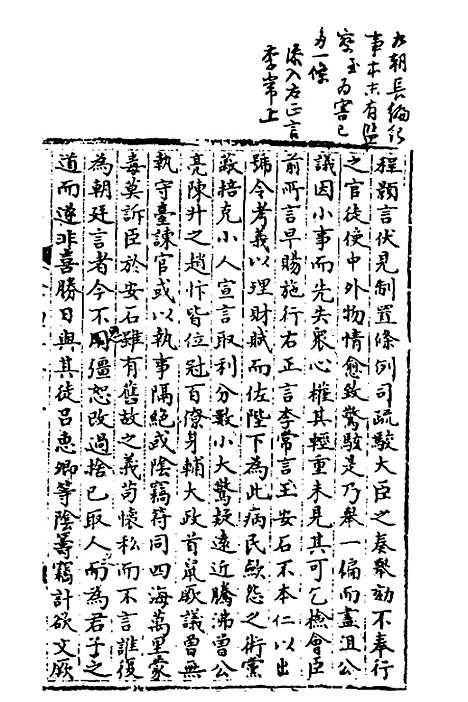 九朝長編紀
事本末有監
察至為害已
多一條
添入右正言
李常上
程顥言伏見制置條例司疏駮大臣之奏舉劾不奉行
之官徒使中外物情愈致驚駭是乃舉一偏而盡沮公
議因小事而先失衆心權其輕重未見其可乞檢會臣
前所言早賜施行右正言李常言王安石不本仁以出
號令考義以理財賦而佐陛下為此病民歛怨之術黨
蔽掊克小人宣言取利分數小大驚疑遠近騰沸曾公
亮陳升之趙忭皆位冠百僚身輔大政首鼠厥議曾無
執守臺諫官或以執事隔絕或陰竊符同四海萬里蒙
毒莫訴臣於安石雖有舊故之義苟懷私而不言誰復
為朝廷言者今不用彊恕改過捨已取人而為君子之
道而遂非喜勝日與其徒吕惠卿等陰籌竊計欲文厥